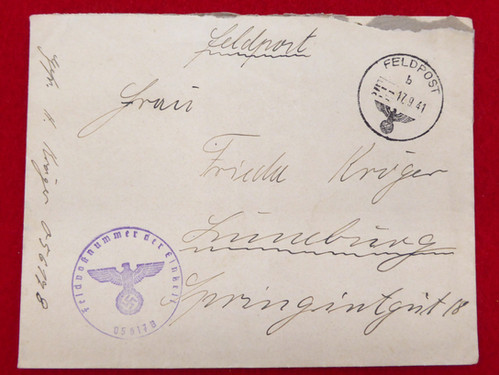 Feldpost
FELDPOST
b
17.9.41
Frau
Frieda Kröger
Lüneburg
Springintgut 18
Feldpostnummer der Einheit
05617B
Kröger 05617B